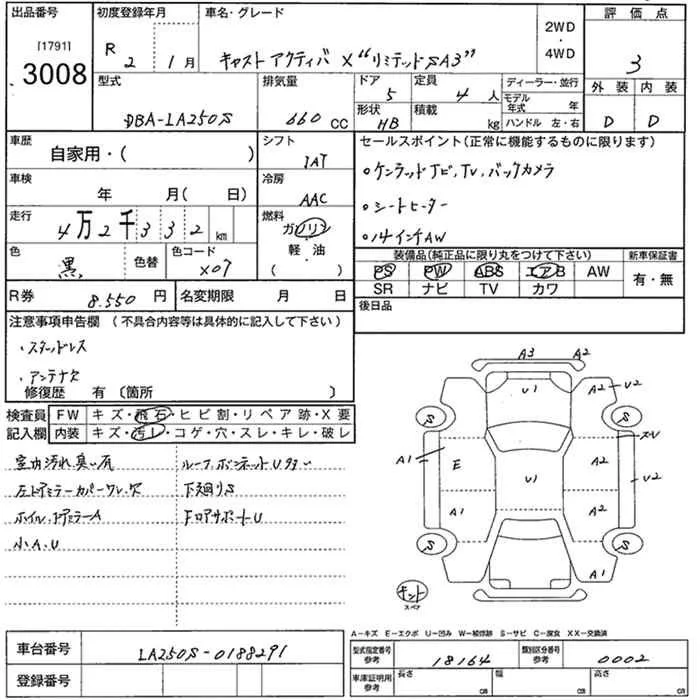 出品番号
[1791]
3008
初度登録年月
R 2 1月
車名・グレード
キャスト アクティバ X "リミテッド SA3"
2WD
・
4WD
評価点
3
型式
DBA-LA250S
排気量
660 CC
ドア
5
定員
4 人
形状
HB
積載
kg
ディーラー・並行
モデル年式 年
ハンドル 左・右
外装 内装
D D
車歴
自家用・( )
シフト
IAT
セールスポイント(正常に機能するものに限ります)
・ケンウッドナビ、TV、バックカメラ
・シートヒーター
・14インチAW
車検
年 月( 日)
冷房
AAC
走行
4万2千332km
燃料
ガソリン
軽・油
( )
色
黒
色替
色コード
X07
装備品(純正品に限り丸をつけて下さい)
PS PW ABS エアB AW
SR ナビ TV カワ
新車保証書
有・無
R券
8.550 円
名変期限 月 日
後日品
注意事項申告欄(不具合内容等は具体的に記入して下さい)
・スタッドレス
・アンテナ欠
修復歴 有〔箇所 〕
検査員
記入欄
FW キズ・飛石・ヒビ割・リペア跡・X要
内装 キズ・汚レ・コゲ・穴・スレ・キレ・破レ
室内汚れ、臭い有
左ドアミラーカバーワレ、欠
ホイル、ドアミラーA
小A、U
ルーフ、ボンネットU多い
下廻りS
FロアサポートU
A3 A2
U1
A2 U2
S S
A1
E
A2
U2
U1
A1 A2
S S
A1
キット
スペア
A−キズ E−エクボ U−凹み W−補修跡 S−サビ C−腐食 XX−交換済
車台番号
LA250S-0188291
登録番号
型式指定番号
参考
18164
類別区分番号
参考
0002
車庫証明用
参考
長さ cm
幅 cm
高さ cm